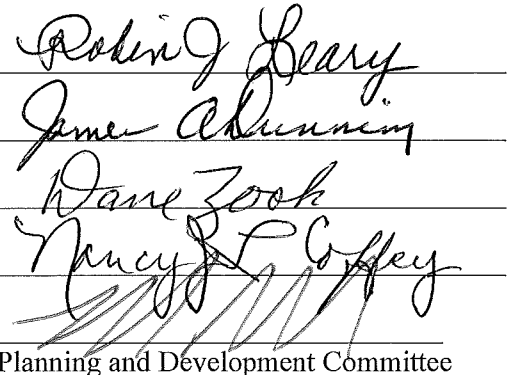 Robin J Leary
James A Dunning
Dane Zook
Nancy J L Coffey
Planning and Development Committee